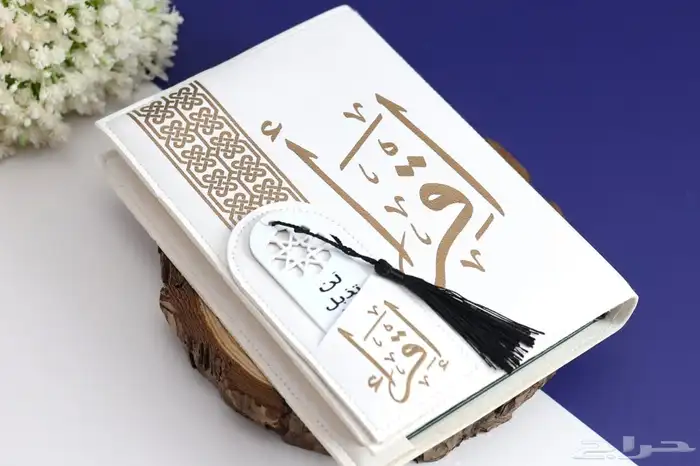 اقرأ
لن
تذبل
اقرأ
حراج